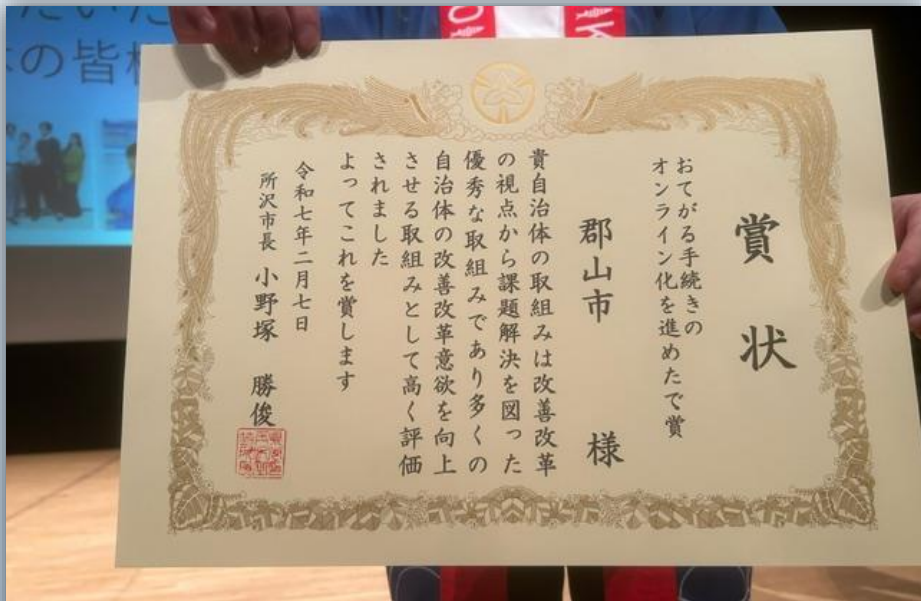 賞状
おてがる手続きの
オンライン化を進めたで賞
郡山市 様
貴自治体の取組みは改善改革
の視点から課題解決を図った
優秀な取組みであり多くの
自治体の改善改革意欲を向上
させる取組みとして高く評価
されました
よってこれを賞します
令和七年二月七日
所沢市長 小野塚 勝俊
の皆